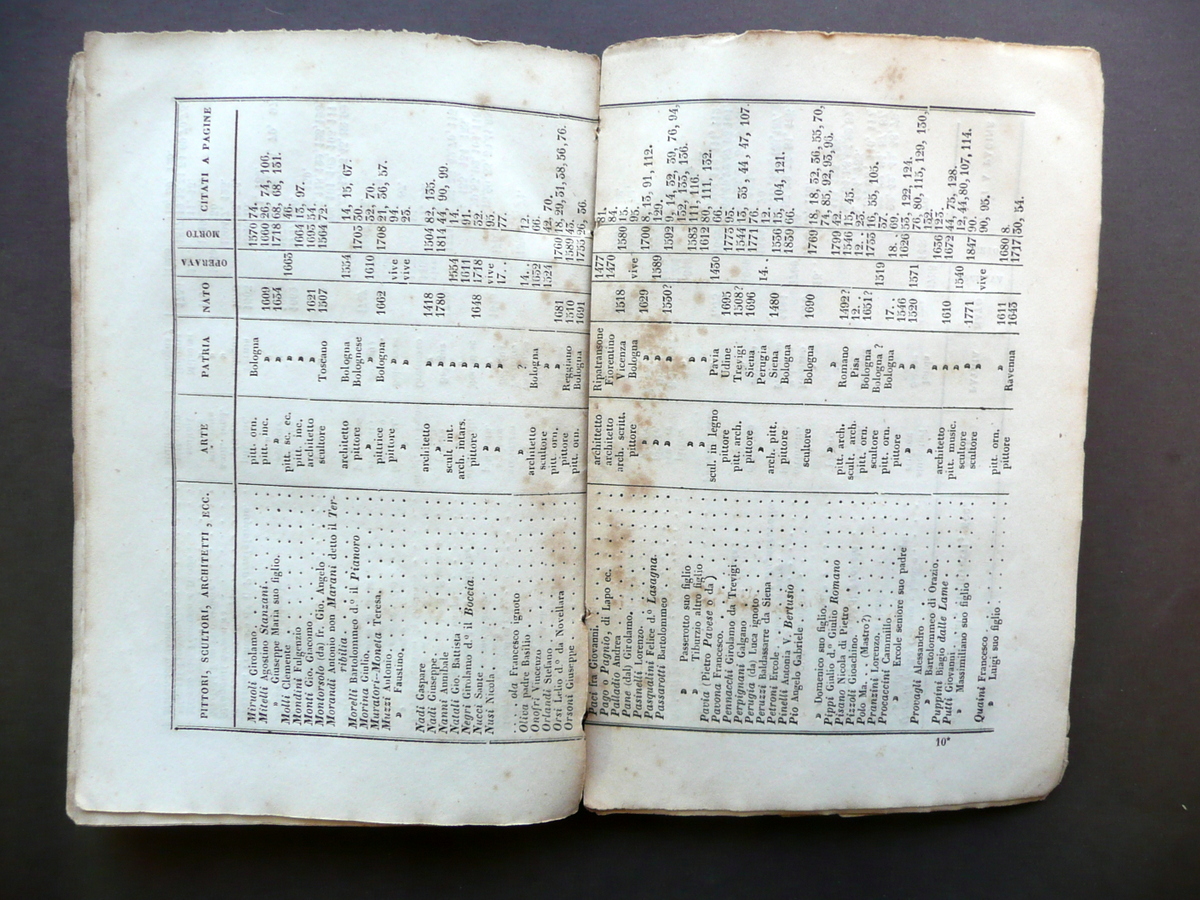 PITTORI, SCULTORI, ARCHITETTI, ECC. ARTE PATRIA NATO OPERAVA MORTO CITATI A PAGINE
Miruoli Girolamo. pitt. orn. Bologna 1570 74.
Mitelli Agostino Stanzani. pitt. inc. » 1609 1660 26, 74, 106.
» Giuseppe Maria suo figlio. » » 1634 1718 68, 68, 151.
Molli Clemente pitt. sc. ec. » 1665 46.
Mondini Fulgenzio pitt. inc. » 1664 15, 97.
Monti Gio. Giacomo. architetto » 1621 1695 54.
Montorsolo (da) fr. Gio. Angelo scultore Toscano 1507 1564 72.
Morandi Antonio non Marani detto il Ter-
ribilia architetto Bologna 1554 14, 15, 67.
Morelli Bartolommeo d.° il Pianoro pittore Bolognese 1705 50.
Morina Giulio. » » 1610 52, 70.
Muratori-Moneta Teresa. pittrice Bologna 1662 1708 21, 36, 57.
Muzzi Antonio. pittore » vive 94.
» Faustino. » » vive 25.
Nadi Gaspare. architetto » 1418 1504 82, 135.
Nadi Giuseppe. » » 1780 1814 44, 90, 99.
Nanni Annibale scult int. » 1554 14.
Natali Gio. Battista arch. intars. » 1611 91.
Negri Girolamo d.° il Boccia. pittore » 1648 1718 52.
Nucci Sante » » vive 95.
Nusi Nicola. » » 17.. 77.
....ola Francesco ignoto » ? 14.. 12.
Oliva padre Basilio architetto Bologna 1652 66.
Onofri Vincenzo scultore » 1524 42, 70.
Orlandi Stefano. pitt. orn. » 1681 1760 18, 29, 31, 58, 56, 76.
Orsi Lelio d.° da Novellara pittore Reggiano 1510 1589 45.
Orsoni Giuseppe. pitt. orn. Bologna 1691 1755 26, 56.
Paci fra Giovanni. architetto Ripatransone 1477 81.
Pago o Pagnio, di Lapo ec. architetto Fiorentino 1470 84.
Palladio Andrea arch. scritt. Vicenza 1518 1580 15.
Pane (dal) Girolamo. pittore Bologna vive 95.
Pasinelli Lorenzo. » » 1629 1700 8, 15, 91, 112.
Pasqualini Felice d.° Lasagna. » » 1589 129.
Passarotti Bartolommeo » » 1530? 1592 9, 14, 32, 39, 76, 94,
132, 133, 136.
» Passerotto suo figlio » » 1585 111, 116.
» Tiburzio altro figlio » » 1612 80, 111, 132.
Pavia (Pietro Pavese o da) scul. in legno Pavia 1430 66.
Pavona Francesco. pittore Udine 1695 1773 95.
Pennacchi Girolamo da Trevigi. pitt. arch. Trevigi 1508? 1544 13, 35, 44, 47, 107.
Perpignani Galgano pittore Siena 1696 1771 76.
Perugia (da) Luca ignoto » Perugia 14.. 12.
Peruzzi Baldassarre da Siena arch. pitt. Siena 1480 1536 15, 104, 121.
Petroni Ercole. pittore Bologna 1839 66.
Pinelli Antonia V. Bertusio
Pio Angelo Gabriele scultore Bologna 1690 1769 18, 18, 32, 36, 55, 70,
» Domenico suo figlio. » » 1799 74, 85, 92, 95, 96.
Pippi Giulio d.° Giulio Romano pitt. arch. Romano 1492? 1546 15, 45.
Pisano Nicola di Pietro scult. arch. Pisa 12.. 12.. 25.
Pizzoli Gioachino. pitt. orn. Bologna 1651? 1733 16, 35, 105.
Polo Ma.. (Mastro?) scultore Bologna ? 1519 57.
Pranzini Lorenzo. pitt. orn. Bologna 17.. 18.. 69.
Procaccini Cammillo pittore » 1546 1626 53, 122, 124.
» Ercole seniore suo padre » » 1520 1571 76, 80, 115, 129, 130,
152.
Provagli Alessandro. » » 1656 125.
» Bartolommeo di Orazio. architetto »
Puppini Biagio dalle Lame pitt. music. » 1540
Putti Giovanni. scultore » 1771 1847 90.
» Massimiliano suo figlio scultore » vive 90, 105.
Quaini Francesco. pitt. orn. » 1611 1680 8.
» Luigi suo figlio pittore Ravenna 1643 1717 50, 54.
10*